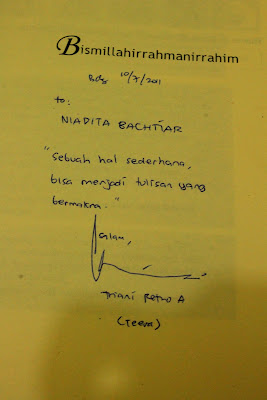 Bismillahirrahmanirrahim
Bdg 10/7/2011
to:
NIADITA BACHTIAR
"Sebuah hal sederhana,
bisa menjadi tulisan yang
bermakna."
Salam,
Triani Retno A
(Teera)